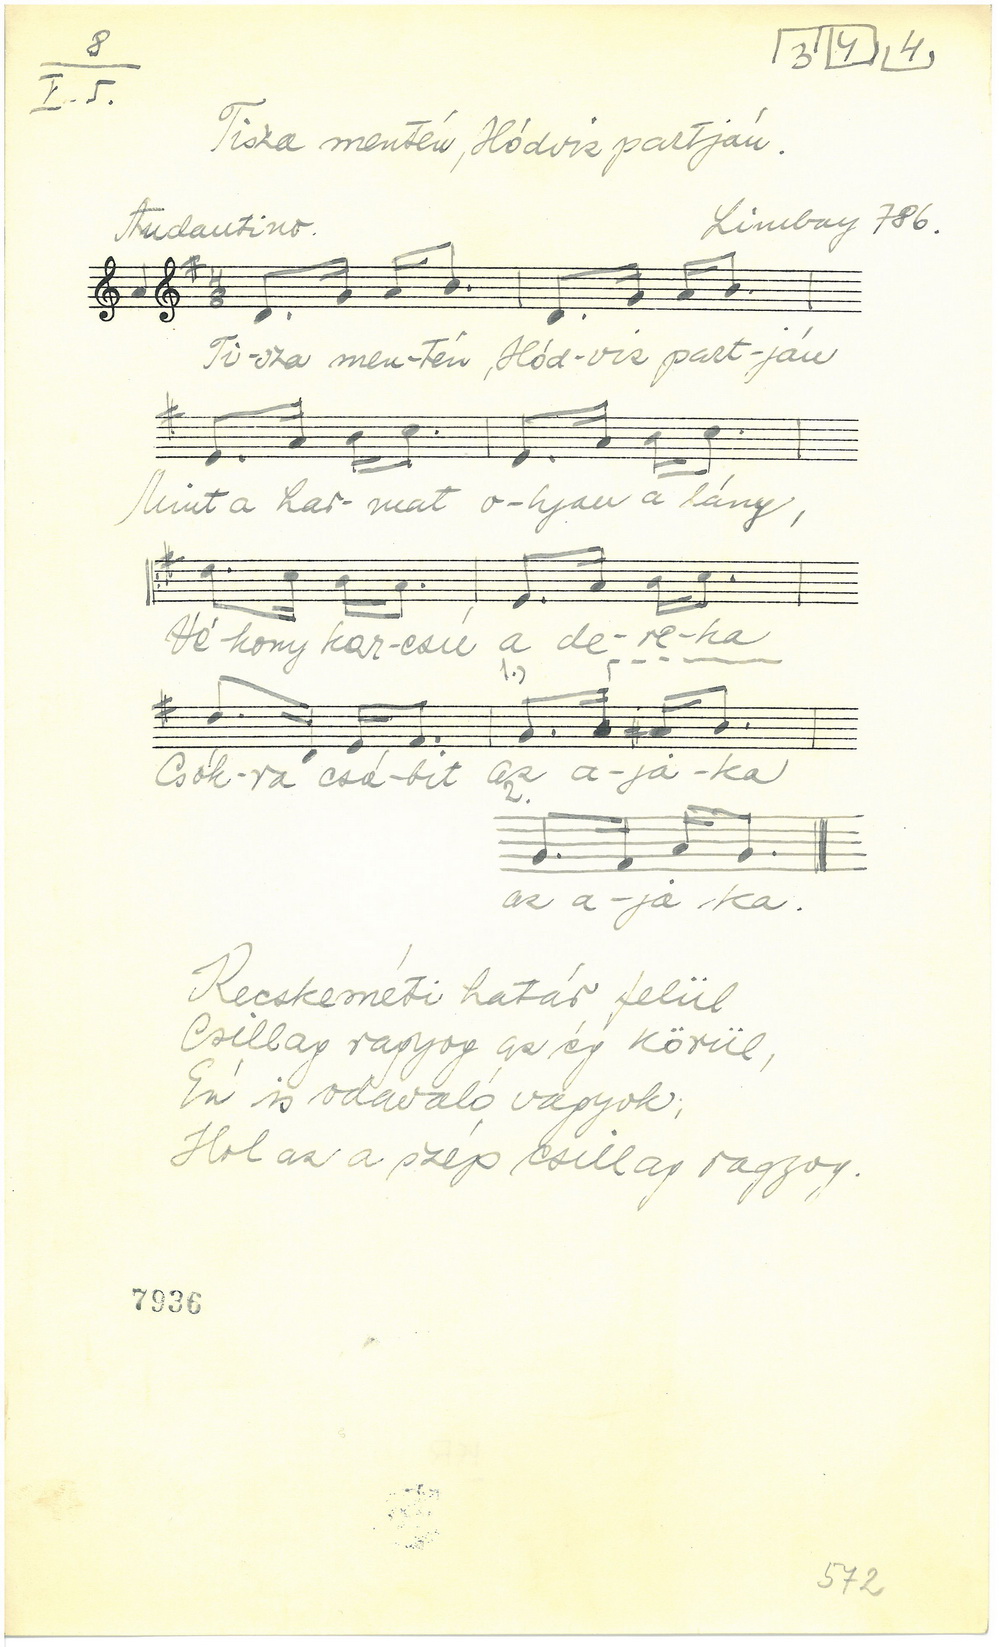 8
I-5.
3 4 4
Tisza mentén, Hódviz partján.
Andantino.
Limbay 786.
4
8
Ti-sza men-tén, Hód-viz part-ján
Mint a har-mat o-lyan a lány,
Vé-kony kar-csú a de-re-ka
1.)
Csók-ra csá-bit az a-ja-ka
2.
az a-ja ka.
Kecskeméti határ felül
Csillag ragyog az ég körül,
Én is odavaló vagyok,
Hol az a szép csillag ragyog.
7936
572